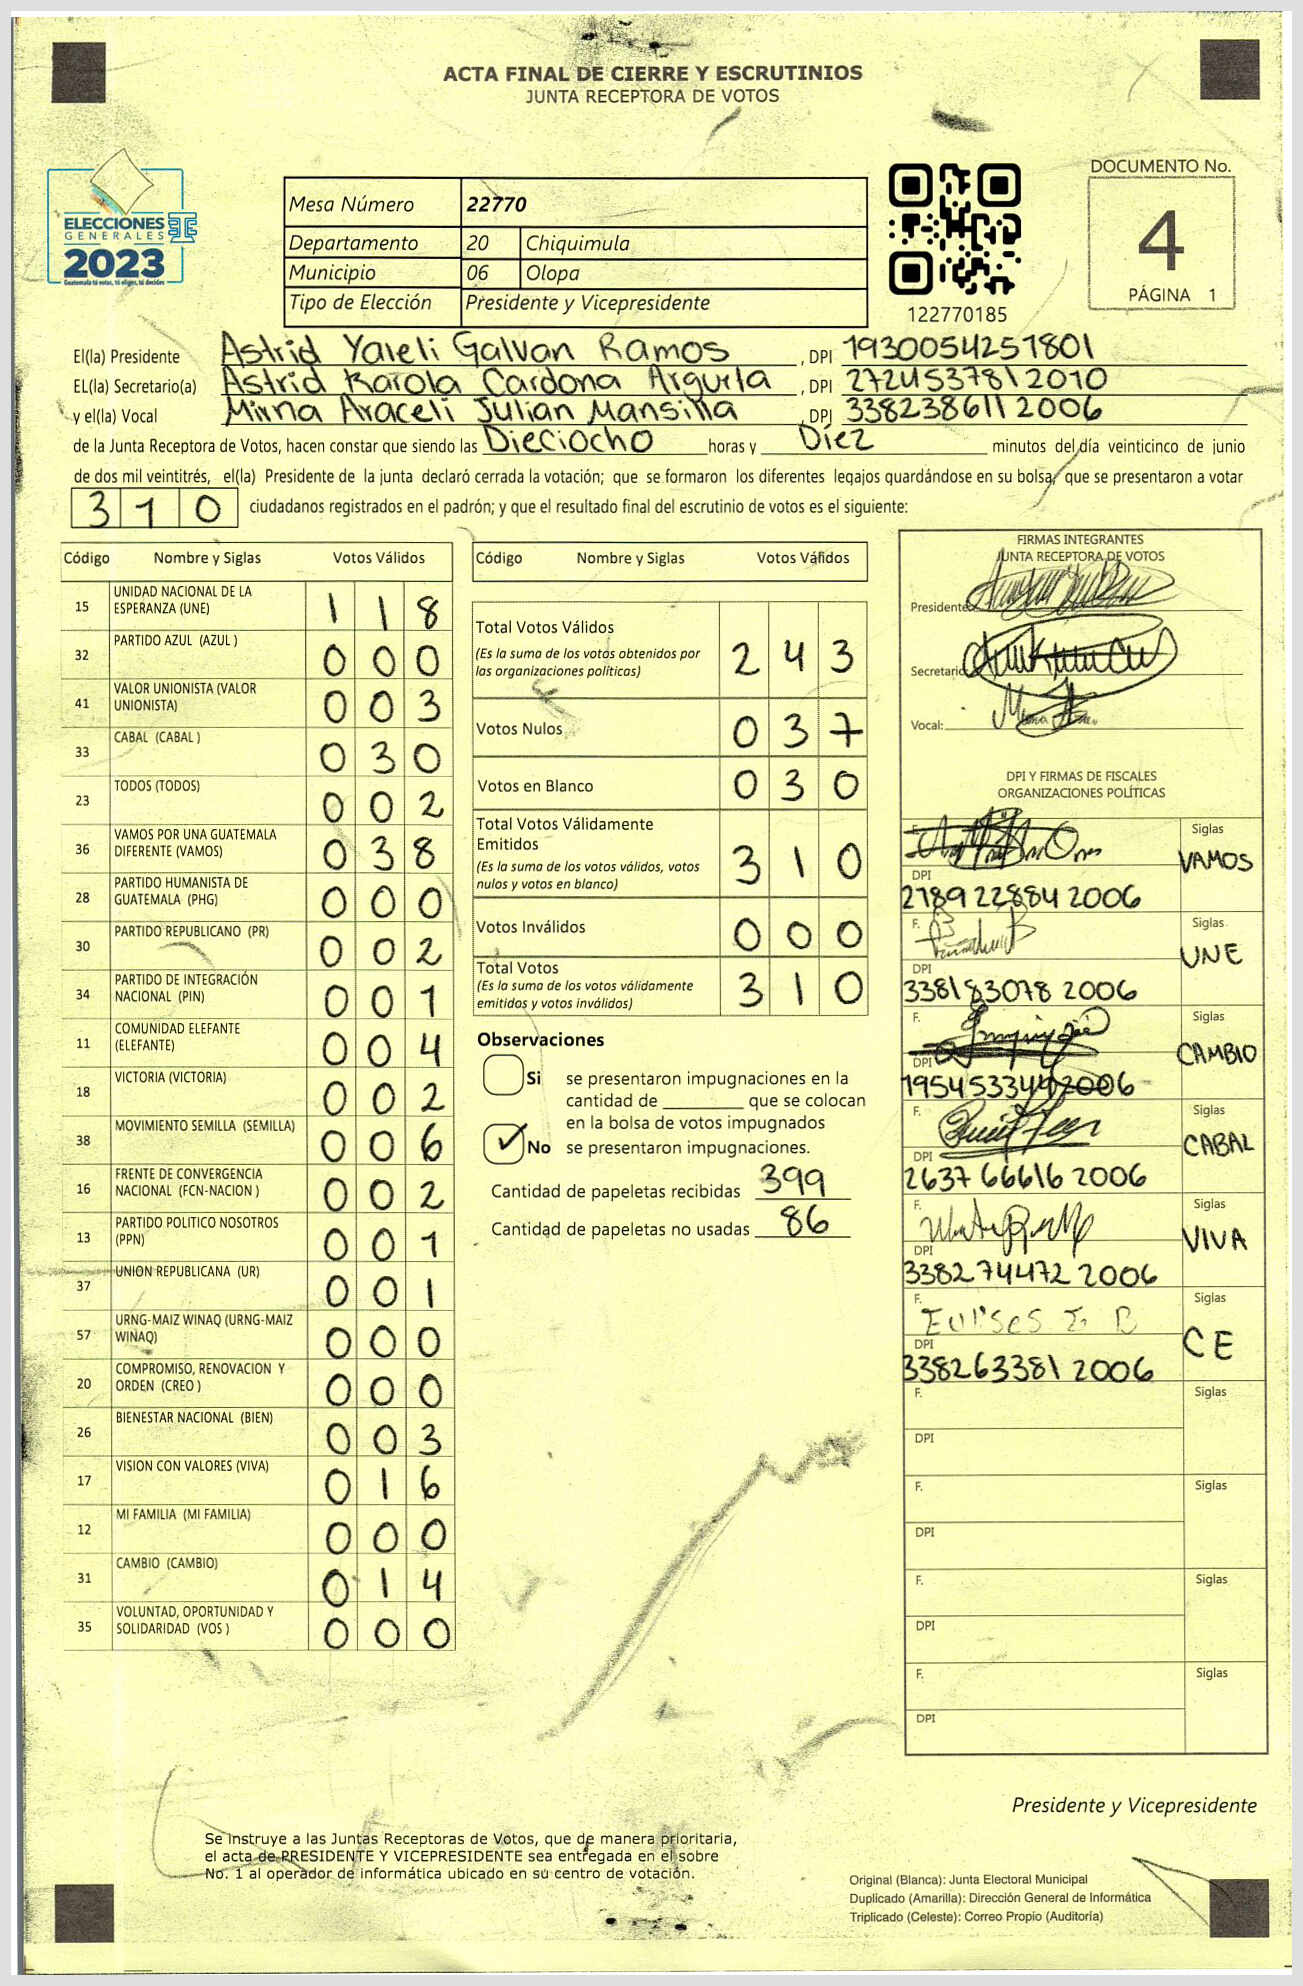 ACTA FINAL DE CIERRE Y ESCRUTINIOS
JUNTA RECEPTORA DE VOTOS
ELECCIONES
GENERALES
2023
Guatemala tú votas, tú eliges, tú decides
Mesa Número 22770
Departamento 20 Chiquimula
Municipio 06 Olopa
Tipo de Elección Presidente y Vicepresidente
122770185
DOCUMENTO No.
4
PÁGINA 1
El(la) Presidente Astrid Yaleli Galvan Ramos, DPI 1930054251801
EL(la) Secretario(a) Astrid Karola Cardona Argueta, DPI 2724537812010
y el(la) Vocal Mirna Araceli Julian Mansilla, DPI 3382386112006
de la Junta Receptora de Votos, hacen constar que siendo las Dieciocho horas y Diez minutos del día veinticinco de junio
de dos mil veintitrés, el(la) Presidente de la junta declaró cerrada la votación; que se formaron los diferentes legajos guardándose en su bolsa, que se presentaron a votar
310 ciudadanos registrados en el padrón; y que el resultado final del escrutinio de votos es el siguiente:
Código Nombre y Siglas Votos Válidos
15 UNIDAD NACIONAL DE LA ESPERANZA (UNE) 1 1 8
32 PARTIDO AZUL (AZUL ) 0 0 0
41 VALOR UNIONISTA (VALOR UNIONISTA) 0 0 3
33 CABAL (CABAL ) 0 3 0
23 TODOS (TODOS) 0 0 2
36 VAMOS POR UNA GUATEMALA DIFERENTE (VAMOS) 0 3 8
28 PARTIDO HUMANISTA DE GUATEMALA (PHG) 0 0 0
30 PARTIDO REPUBLICANO (PR) 0 0 2
34 PARTIDO DE INTEGRACIÓN NACIONAL (PIN) 0 0 1
11 COMUNIDAD ELEFANTE (ELEFANTE) 0 0 4
18 VICTORIA (VICTORIA) 0 0 2
38 MOVIMIENTO SEMILLA (SEMILLA) 0 0 6
16 FRENTE DE CONVERGENCIA NACIONAL (FCN-NACION ) 0 0 2
13 PARTIDO POLITICO NOSOTROS (PPN) 0 0 1
37 UNION REPUBLICANA (UR) 0 0 1
57 URNG-MAIZ WINAQ (URNG-MAIZ WINAQ) 0 0 0
20 COMPROMISO, RENOVACION Y ORDEN (CREO ) 0 0 0
26 BIENESTAR NACIONAL (BIEN) 0 0 3
17 VISION CON VALORES (VIVA) 0 1 6
12 MI FAMILIA (MI FAMILIA) 0 0 0
31 CAMBIO (CAMBIO) 0 1 4
35 VOLUNTAD, OPORTUNIDAD Y SOLIDARIDAD (VOS ) 0 0 0
Código Nombre y Siglas Votos Válidos
Total Votos Válidos 2 4 3
(Es la suma de los votos obtenidos por
las organizaciones políticas)
Votos Nulos 0 3 7
Votos en Blanco 0 3 0
Total Votos Válidamente
Emitidos 3 1 0
(Es la suma de los votos válidos, votos
nulos y votos en blanco)
Votos Inválidos 0 0 0
Total Votos 3 1 0
(Es la suma de los votos válidamente
emitidos y votos inválidos)
Observaciones
Si se presentaron impugnaciones en la
cantidad de ________ que se colocan
en la bolsa de votos impugnados
✓ No se presentaron impugnaciones.
Cantidad de papeletas recibidas 399
Cantidad de papeletas no usadas 86
FIRMAS INTEGRANTES
JUNTA RECEPTORA DE VOTOS
Presidente:
Secretario
Vocal:
DPI Y FIRMAS DE FISCALES
ORGANIZACIONES POLÍTICAS
F. Siglas
VAMOS
DPI
2789228842006
F. Siglas
UNE
DPI
3381830782006
F. Siglas
CAMBIO
DPI
1954533492006
F. Siglas
CABAL
DPI
2637666162006
F. Siglas
VIVA
DPI
3382744722006
F. Siglas
CE
DPI
3382633812006
F. Siglas
DPI
F. Siglas
DPI
F. Siglas
DPI
F. Siglas
DPI
Presidente y Vicepresidente
Se instruye a las Juntas Receptoras de Votos, que de manera prioritaria,
el acta de PRESIDENTE Y VICEPRESIDENTE sea entregada en el sobre
No. 1 al operador de informática ubicado en su centro de votación.
Original (Blanca): Junta Electoral Municipal
Duplicado (Amarilla): Dirección General de Informática
Triplicado (Celeste): Correo Propio (Auditoría)